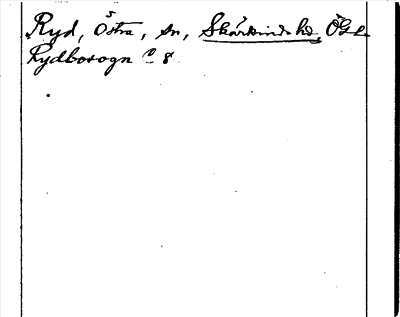 Ryd, Östra, sn, Skärkinds hd, Ögl.
Rydborogn C 8